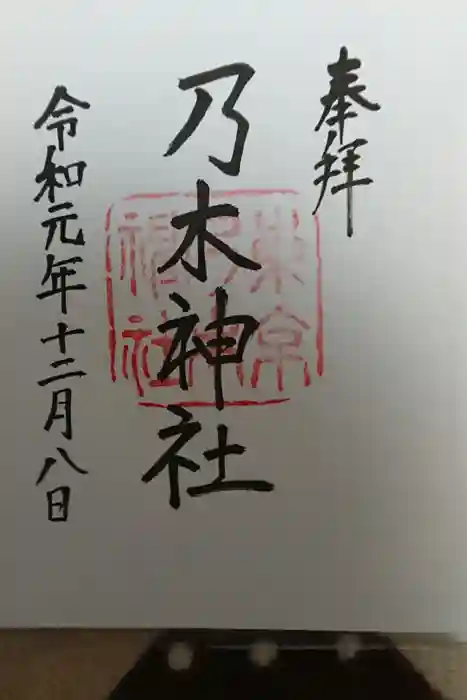 奉拝
乃木神社
令和元年十二月八日
東京